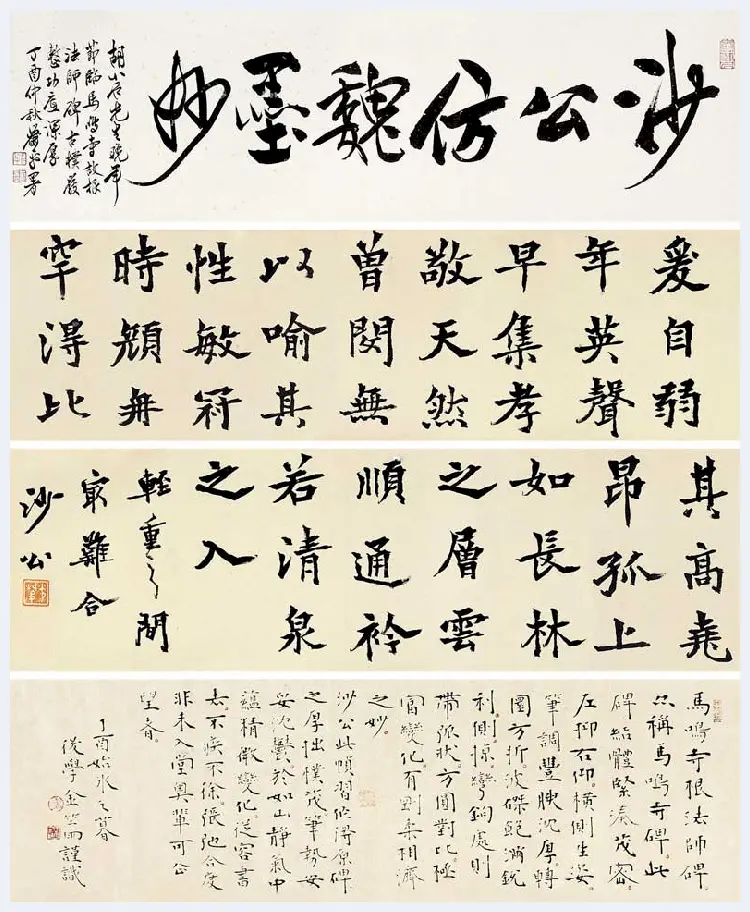 沙公仿魏墨妙
胡小石先生晚年
節臨馬鳴寺故根
法師碑古樸嚴
整功底深厚
丁酉仲秋蕭平署
爰自弱
年英聲
早集孝
敬天然
曾閔無
以喻其
性敏符
時
罕得比
其高堯
昂孤上
如長林
之層雲
順通衿
若清泉
之入
輕重之間
最難合
沙公
馬鳴寺根法師碑。
亦稱馬鳴寺碑。此
碑結體緊湊茂密。
左抑右仰。橫側生姿
筆調豐腴沈厚。轉
圜方折。波磔銳
利。側掠彎鉤處則
帶弧狀方圓對比極
富變化。有剛柔相濟
之妙。
沙公此幀習作得原碑
之厚拙樸茂筆勢安
妥沈鬱於如山靜氣中
蘊精微變化。從容書
去。不疾不徐。張弛合度
非未入堂奧輩可企
望者。
丁酉始冰之暮
後學金謹識